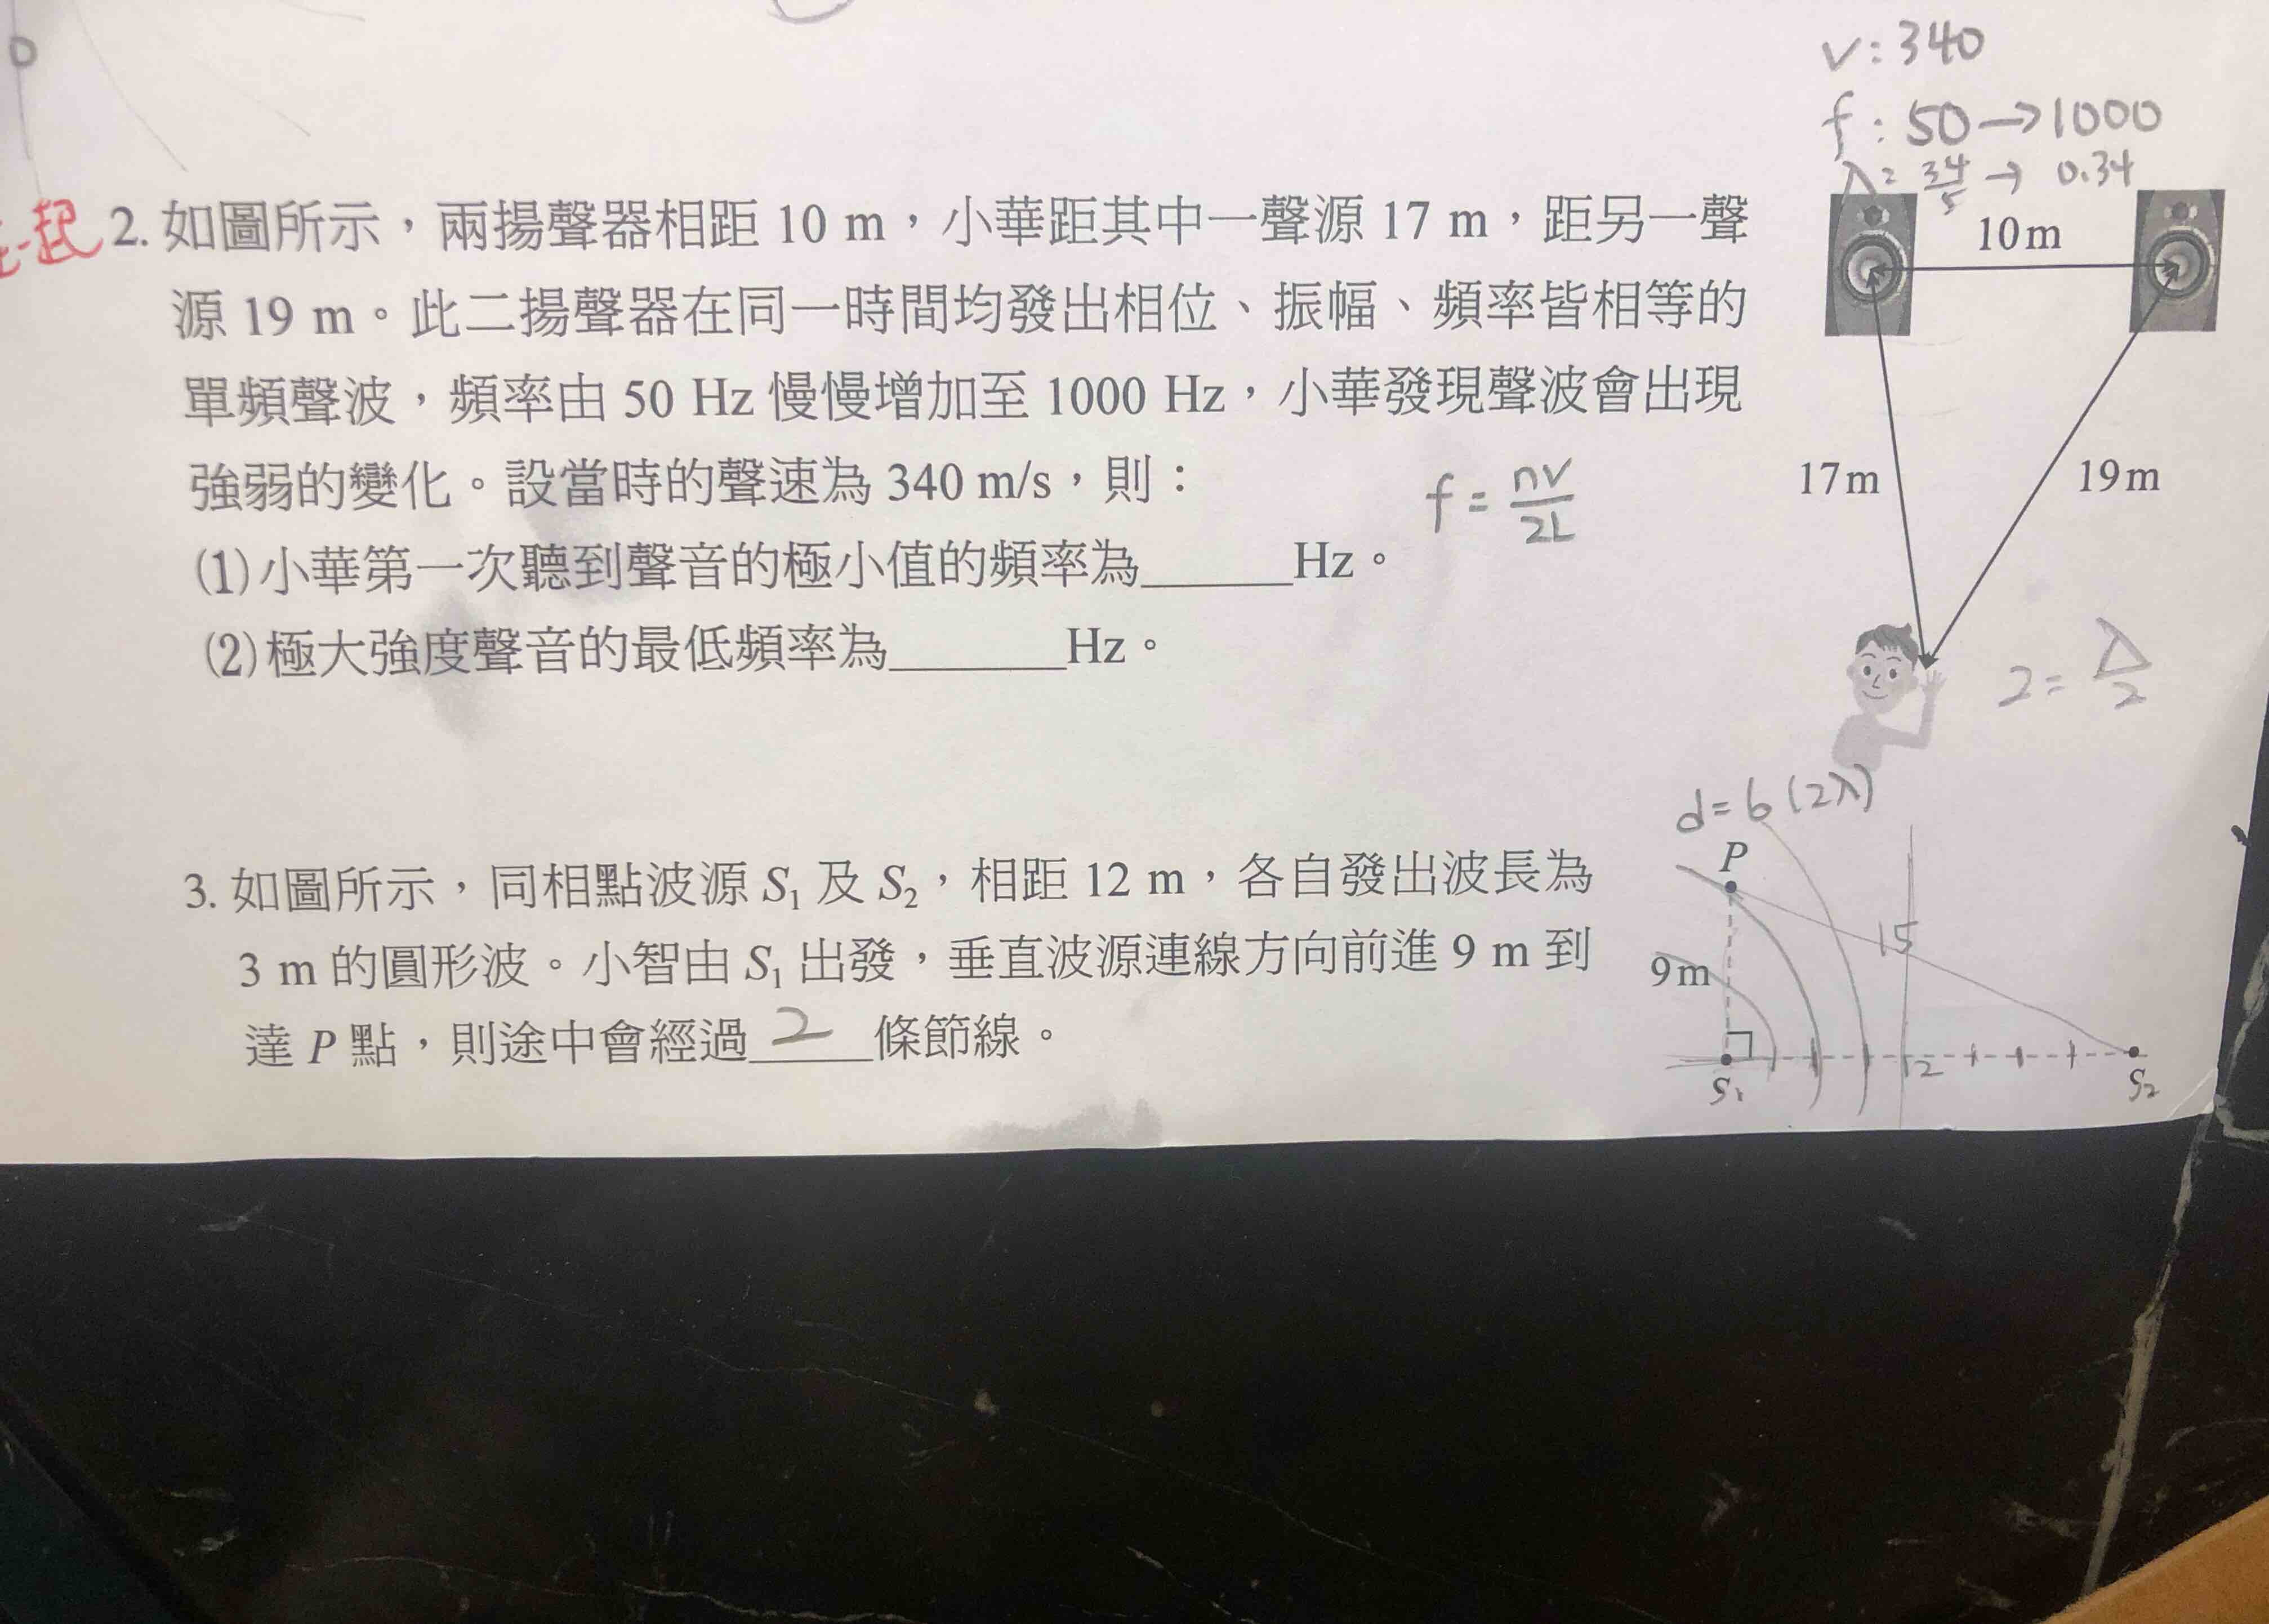 D
v: 340
f: 50→1000
λ= 34/5 → 0.34
起 2. 如圖所示，兩揚聲器相距 10 m，小華距其中一聲源 17 m，距另一聲
10m
源 19 m。此二揚聲器在同一時間均發出相位、振幅、頻率皆相等的
單頻聲波，頻率由 50 Hz 慢慢增加至 1000 Hz，小華發現聲波會出現
強弱的變化。設當時的聲速為 340 m/s，則：
f = nv/2L
17m
19m
(1) 小華第一次聽到聲音的極小值的頻率為______Hz。
(2) 極大強度聲音的最低頻率為______Hz。
2= λ/2
d=6(2λ)
P
3. 如圖所示，同相點波源 S₁ 及 S₂，相距 12 m，各自發出波長為
3 m 的圓形波。小智由 S₁ 出發，垂直波源連線方向前進 9 m 到
9m
15
達 P 點，則途中會經過 2 條節線。
12
S₁
S₂